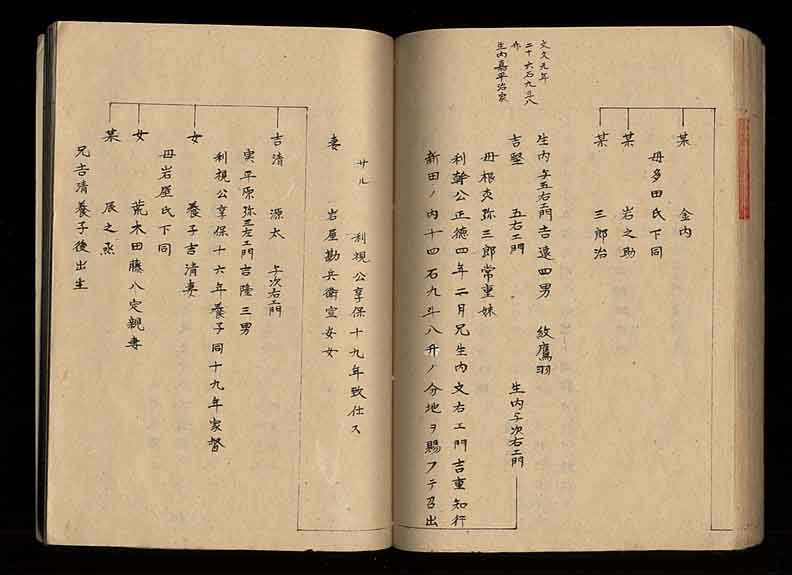 某 金内
母多田氏下同
某 岩之助
某 三郎治
文久元年
二十六石九斗八
升
生内嘉平治家
生内与五右エ門吉遠四男 紋鷹羽
吉堅 五右エ門 生内与次右エ門
母根炎弥三郎常重妹
利幹公正徳四年二月兄生内文右エ門吉重知行
新田ノ内十四石九斗八升ノ分地ヲ賜フテ召出
サル 利視公享保十九年致仕ス
妻 岩屋勘兵衛宣安女
吉清 源太 与次右エ門
実平原弥三左エ門吉隆三男
利視公享保十六年養子同十九年家督
女 養子吉清妻
母岩屋氏下同
女 荒木田藤八定親妻
某 辰之丞
兄吉清養子後出生